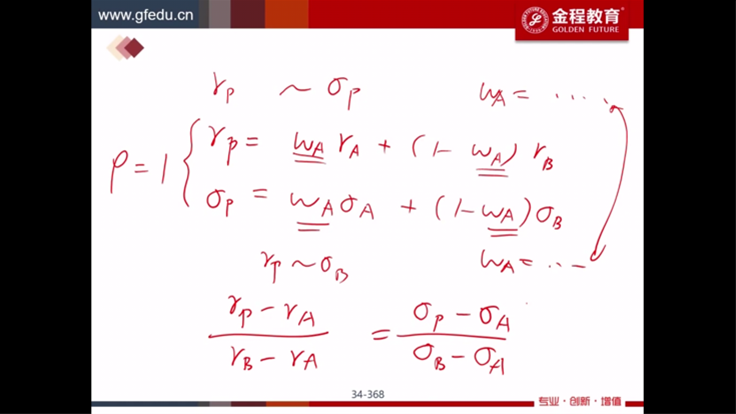 www.gfedu.cn
金程教育
GOLDEN FUTURE
r_P ~ σ_P   w_A = ....
ρ = 1 { r_P = w_A r_A + (1 - w_A) r_B
σ_P = w_A σ_A + (1 - w_A) σ_B
r_P ~ σ_B   w_A = ...
(r_P - r_A) / (r_B - r_A) = (σ_P - σ_A) / (σ_B - σ_A)
34-368
专业·创新·增值